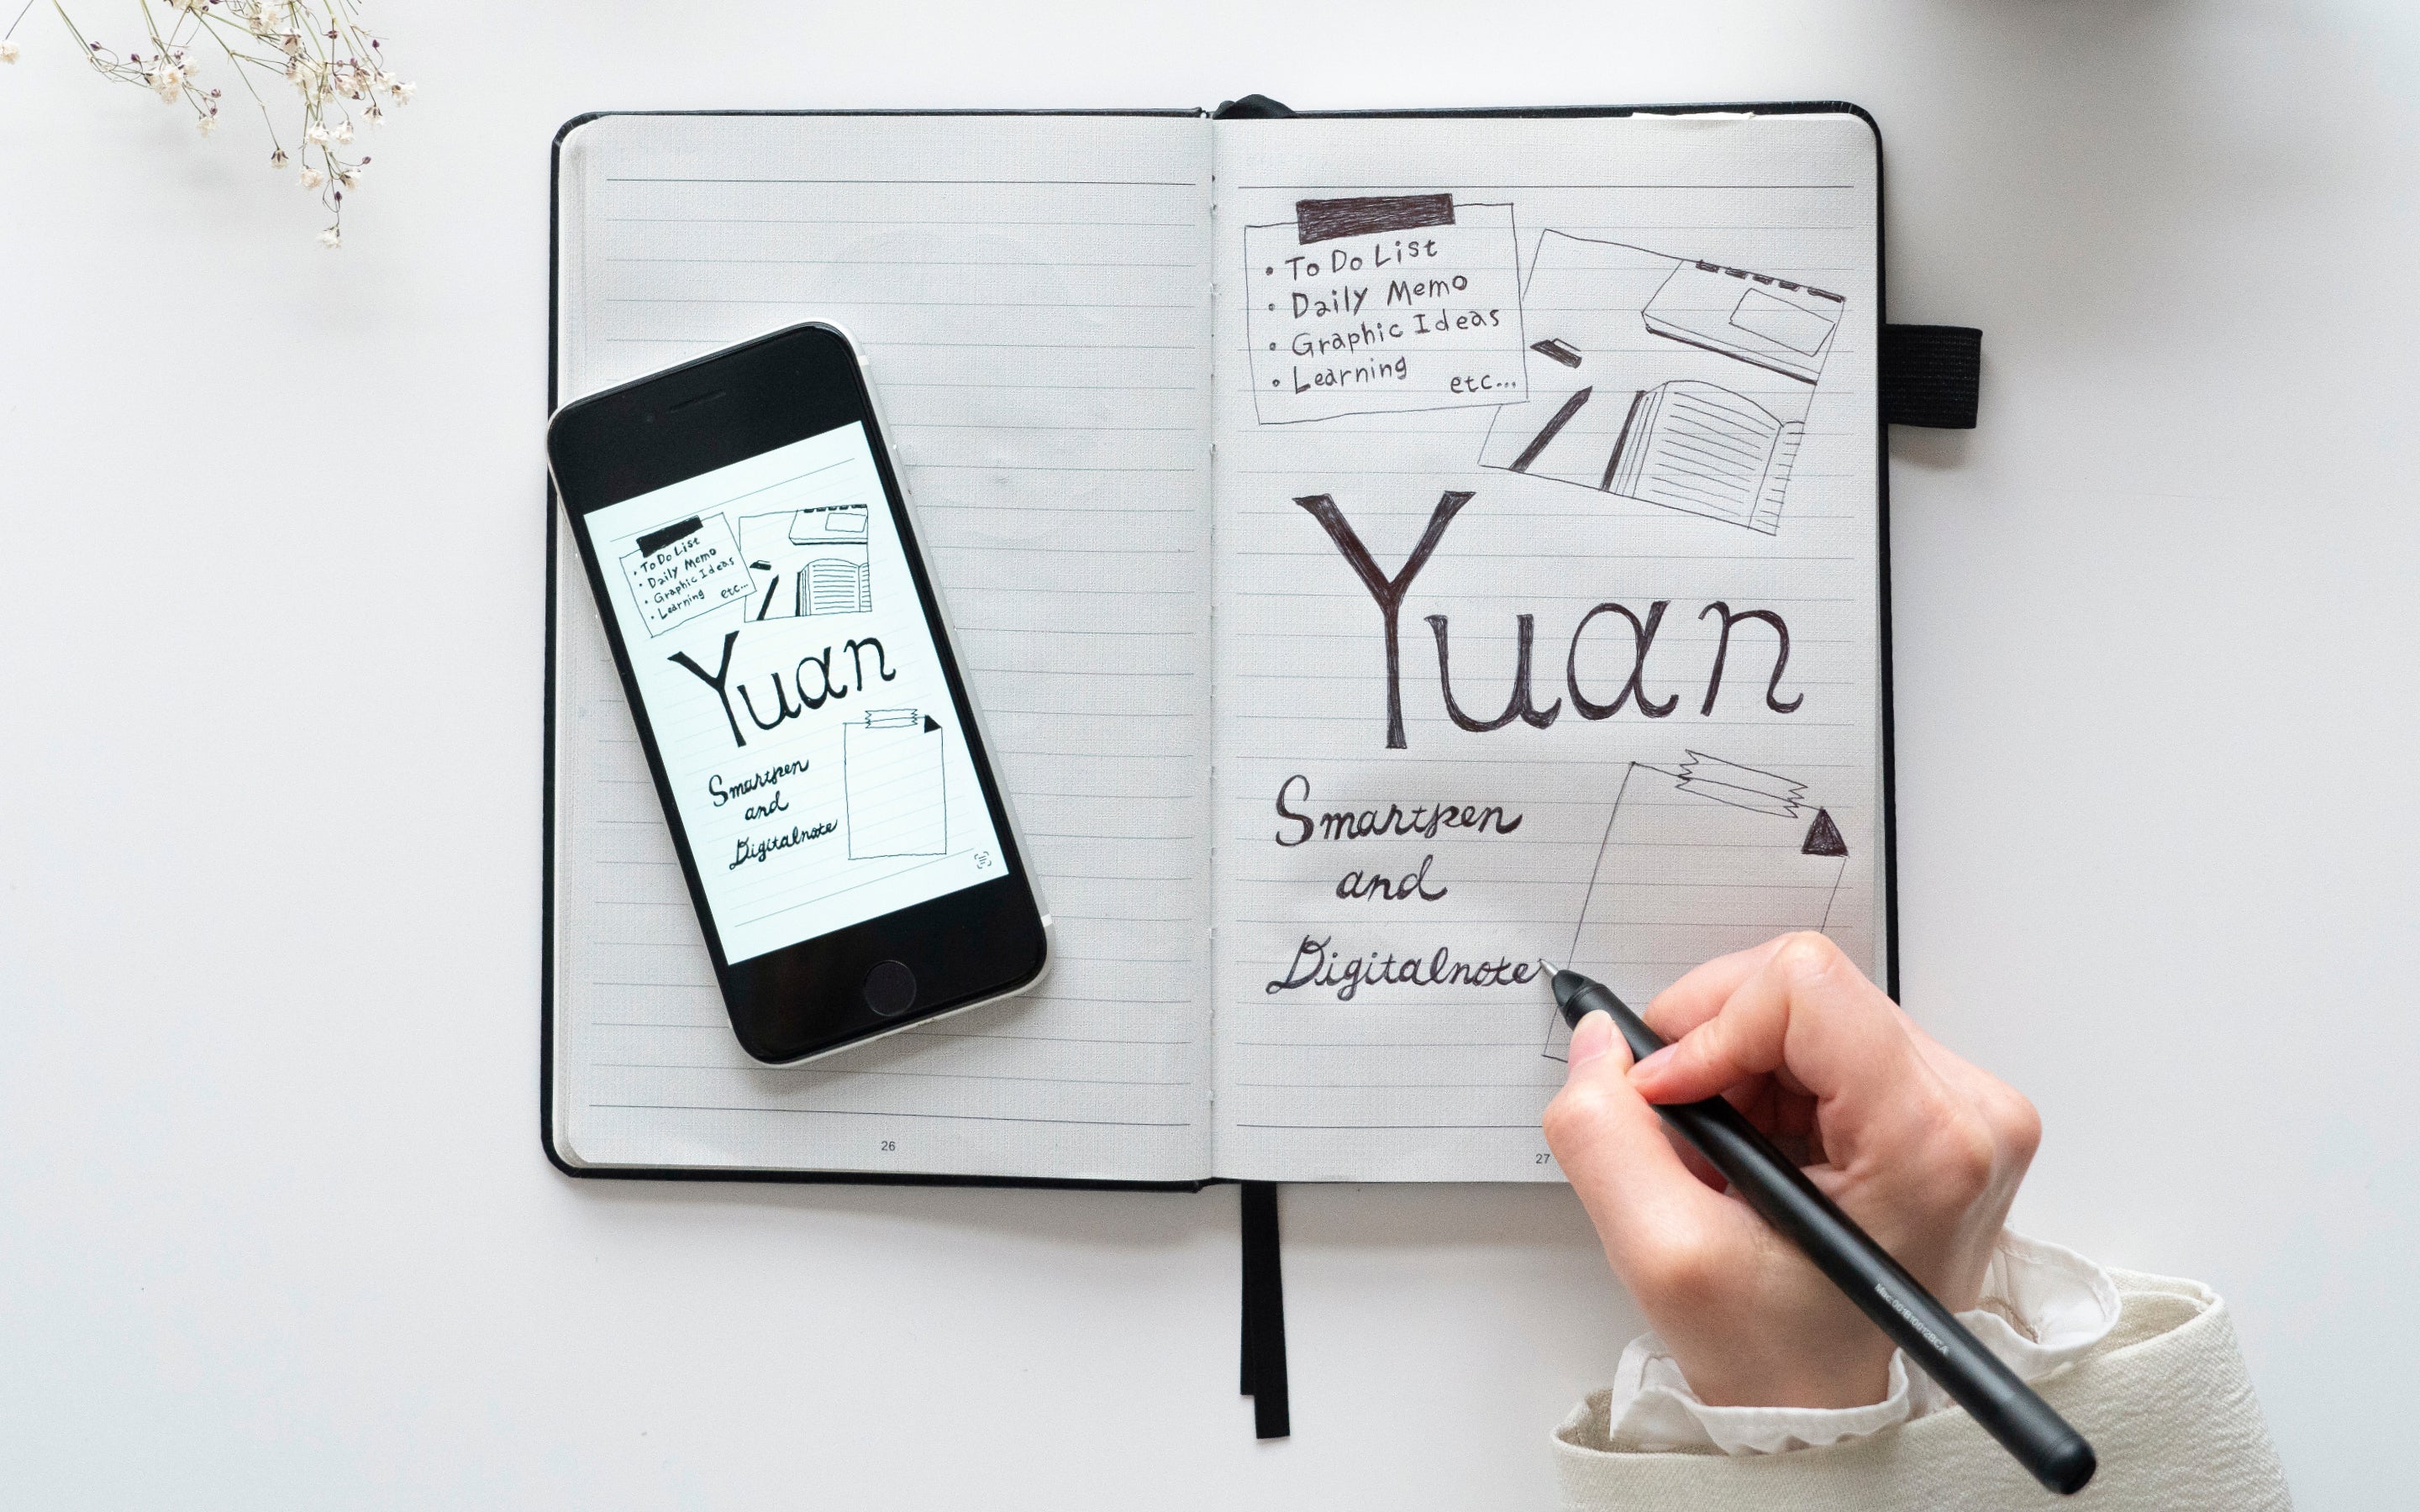 • To Do List
• Daily Memo
• Graphic Ideas
• Learning etc...
Yuan
Smartpen
and
Digitalnote
• To Do List
• Daily Memo
• Graphic Ideas
• Learning etc...
Yuan
Smartpen
and
Digitalnote
26
27